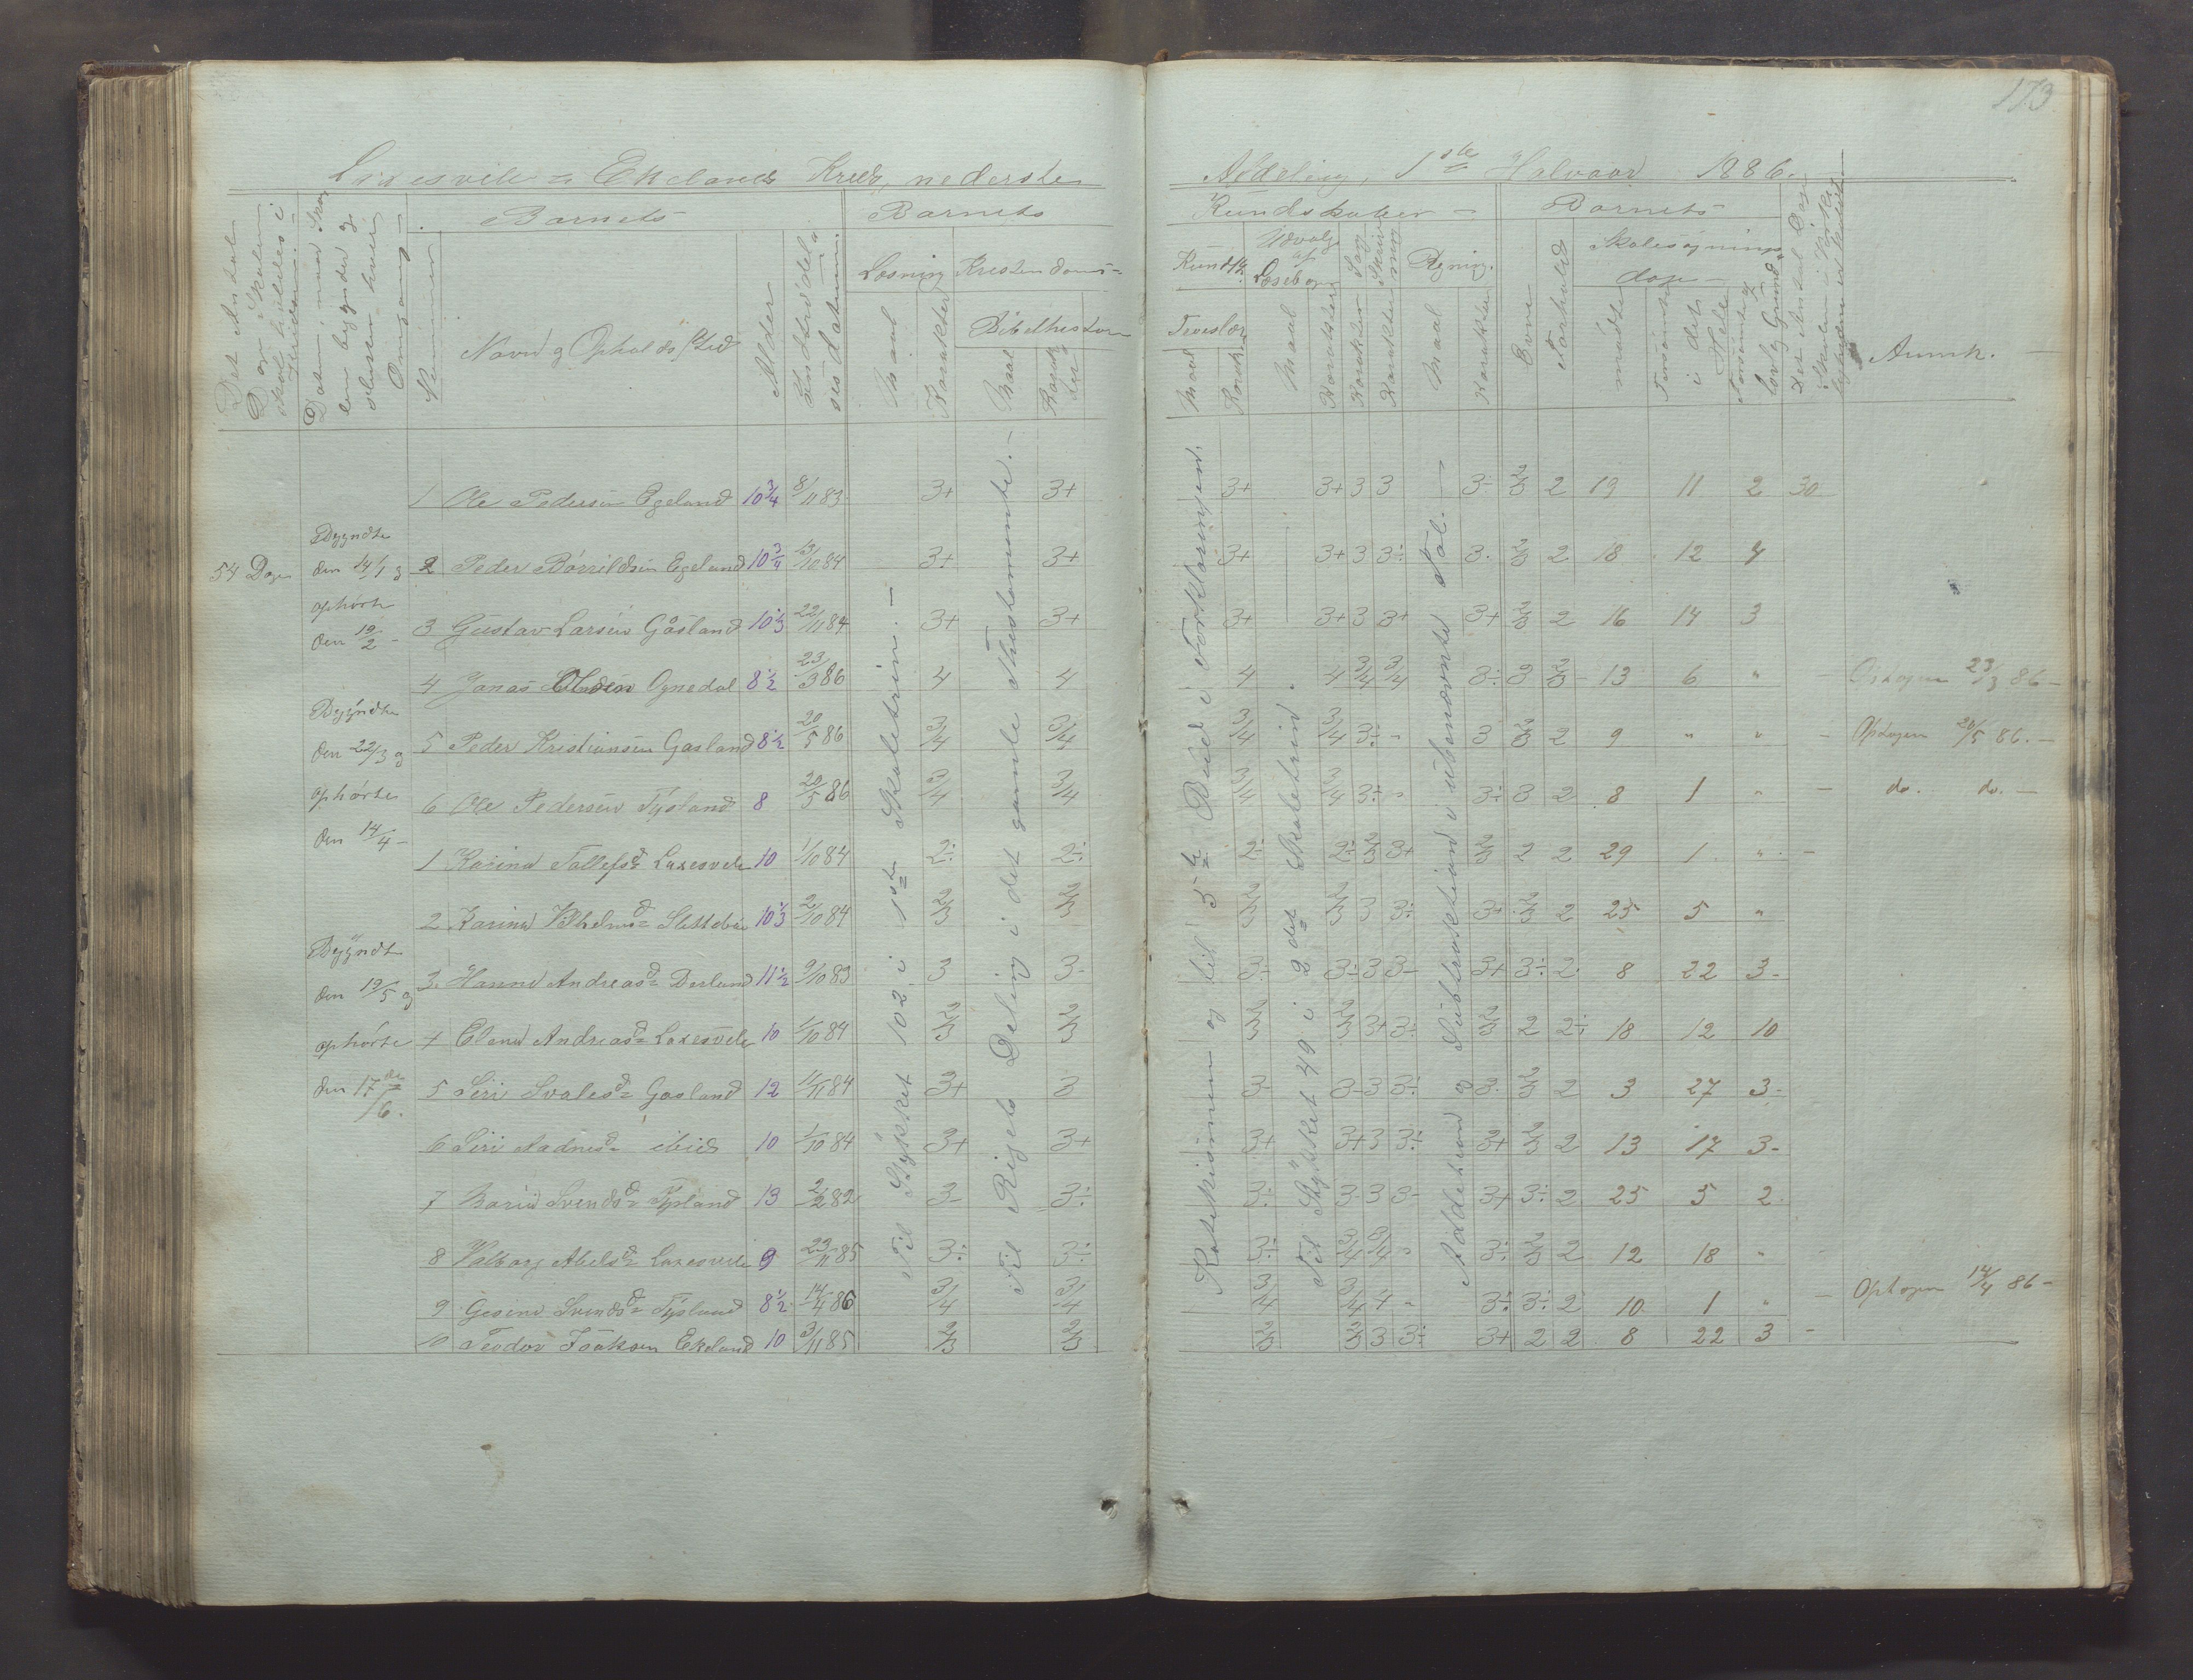 173
Ekelands Kreds, nederste Afdeling, 1ste Halvaar 1886.
Barnets
Barnets
Kundskaber
Barnets
Det Antal Dage Skolen skal holdes i Kredsen.
Datum, naar Skolen begynder og slutter hver Omgang
Nummer
Navn og Opholdssted
Alder
Indtrædelsesdatum.
Læsning
Maal
Karakter
Kristendoms-
Bibelhistorie
Maal
Karakter
Troeslære
Maal
Karakter
Udvalg af Læsebogen
Maal
Karakter
Sang
Karakter
Skrivning
Karakter
Regning.
Maal
Karakter
Evne
Forhold
Skolesøgnings-
dage
mødte
forsømte i det Hele
forsømte af lovlig Grund
Anmk.
54 Dage
Begyndte
den 14/1 og
ophørte
den 19/2 -
Begyndte
den 22/3 og
ophørte
den 14/4 -
Begyndte
den 19/5 og
ophørte
den 17de/6.
Til Stykket 102 i 1ste Skoletrin. -
Til Rigets Deling i det gamle Thestamente. -
Katekismen og til 5te Bud i Forklaringen.
Til Stykket 49 i 2det Skoletrin.
Addition og Subtraktion i ubenævnte Tal. -
1 Ole Pedersen Egeland 10 3/4 8/11 83 3+ 3+ 3+ 3+ 3 3 3÷ 2/3 2 19 11 2 30
2 Peder Egeland 10 3/4 13/10 84 3+ 3+ 3+ 3+ 3 3÷ 3. 2/3 2 18 12 4
3 Gustav Larsen Gåsland 10 1/3 22/11 84 3+ 3+ 3+ 3+ 3 3+ 3+ 2/3 2 16 14 3
4 Jonas Olsen Ognedal 8 1/2 23/3 86 4 4 4 4 3/4 3/4 3÷ 3 2/3 13 6 " Optagen 23/3 86 -
5 Peder Kristiansen Gasland 8 1/2 20/5 86 3/4 3/4 3/4 3/4 3÷ " 3 2/3 2 9 " " - Optagen 20/5 86. -
6 Ole Pedersen Tysland 8 20/5 86 3/4 3/4 3/4 3/4 3÷ " 3÷ 3 2 8 1 " - do. do. -
1 Karine Tollefsd Laxesvele 10 1/10 84 2÷ 2÷ 2÷ 2÷ 2/3 3+ 2/3 2 2 29 1 " -
2 Karine Vilhelmsd 10 1/3 2/10 84 2/3 2/3 2/3 2/3 3 3÷ 3+ 2/3 2 25 5 "
3 Hanne Andreasd 11 1/2 9/10 83 3 3- 3- 3÷ 3 3- 3+ 3÷ 2 8 22 3-
4 Elene Andreasd Laxesvele 10 1/10 84 2/3 2/3 2/3 2/3 3+ 3÷ 2/3 2 2÷ 18 12 10
5 Siri Svalesd Gasland 12 11/11 84 3+ 3 3- 3- 3 3÷ 3. 2/3 2 3 27 3-
6 Siri Aadnesd ibid 10 1/10 84 3+ 3+ 3+ 3+ 3 3÷ 3+ 2/3 2 13 17 3-
7 Marie Svendsd Tysland 13 2/2 82 3- 3÷ 3÷ 3- 3 3- 3+ 3÷ 2 25 5 2
8 Valborg Abelsd Laxesvele 9 23/11 85 3÷ 3÷ 3÷ 3/4 3/4 " 3÷ 2/3 2 12 18 "
9 Gesine Svendsd Tysland 8 1/2 14/4 86 3/4 3/4 3/4 3/4 4 " 3÷ 3÷ 2 10 1 " - Optagen 14/4 86 -
10 Teodor Isaksen Ekeland 10 3/11 85 2/3 2/3 2/3 2/3 3 3÷ 3+ 2 2 8 22 3 -